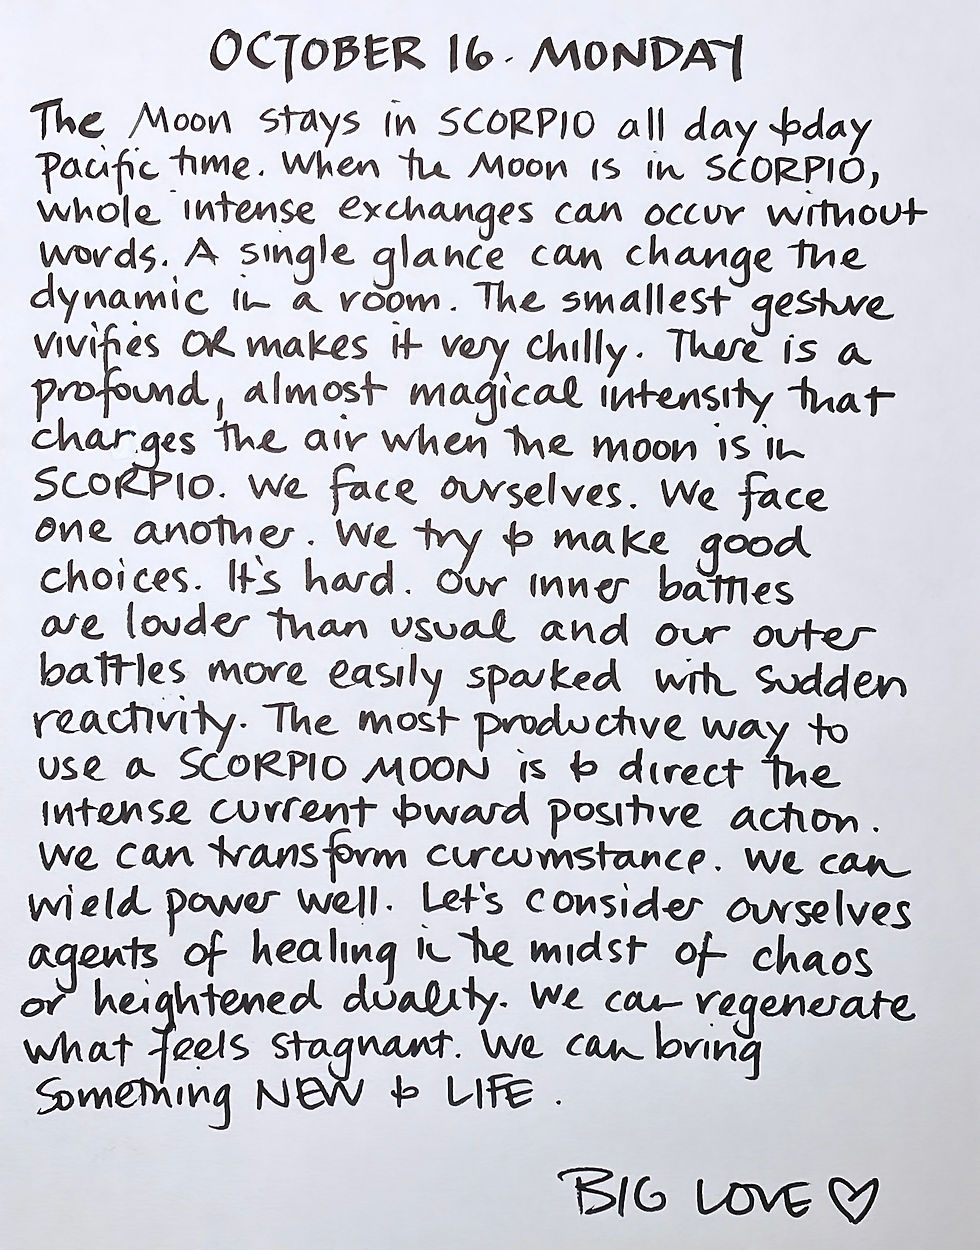 OCTOBER 16. MONDAY
The Moon stays in SCORPIO all day today
Pacific time. When the Moon is in SCORPIO,
whole intense exchanges can occur without
words. A single glance can change the
dynamic in a room. The smallest gesture
vivifies OR makes it very chilly. There is a
profound, almost magical intensity that
charges the air when the moon is in
SCORPIO. We face ourselves. We face
one another. We try to make good
choices. It's hard. Our inner battles
are louder than usual and our outer
battles more easily sparked with sudden
reactivity. The most productive way to
use a SCORPIO MOON is to direct the
intense current toward positive action.
We can transform circumstance. We can
wield power well. Let's consider ourselves
agents of healing in the midst of chaos
or heightened duality. We can regenerate
what feels stagnant. We can bring
something NEW to LIFE.
BIG LOVE ♡